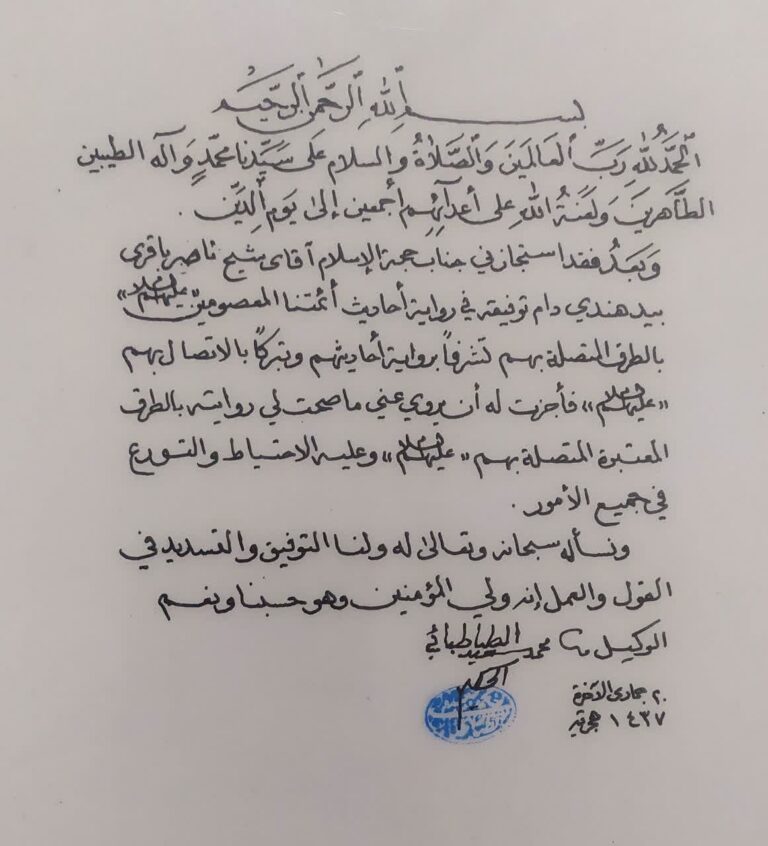 بسم اللّٰهِ الرَّحمٰنِ الرَّحيم
الحَمدُ للّٰهِ رَبِّ العَالَمينَ وَالصَّلاٰةُ والسلام عَلى سَيِّدِنا محمّدٍ وَآله الطيبين
الطَّاهرينَ وَلَعنَةُ اللّٰهِ على أعدآئِهِم أجمعين إلىٰ يَوم الدِّين .
وَبَعدُ فقد استجازني جناب حجة الإسلام آقاى شيخ ناصر باقرى
بيدهندي دام توفيقه في رواية أحاديث أئمتنا المعصومين "عليهم السلام"
بالطرق المتصلة بهم تشرفاً برواية أحاديثهم وتبركاً بالاتصال بهم
"عليهم السلام" فأجزت له أن يروي عني ما صحت لي روايته بالطرق
المعتبرة المتصلة بهم "عليهم السلام" وعليه الاحتياط والتورع
في جميع الأمور .
ونسأله سبحانه وتعالىٰ له ولنا التوفيق والتسديد في
القول والعمل إنه ولي المؤمنين وهو حسبنا ونعم
الوكيل محمد سعيد الطباطبائي
الحكيم
٢٠ جمادى الآخرة
١٤٣٧ هجرية